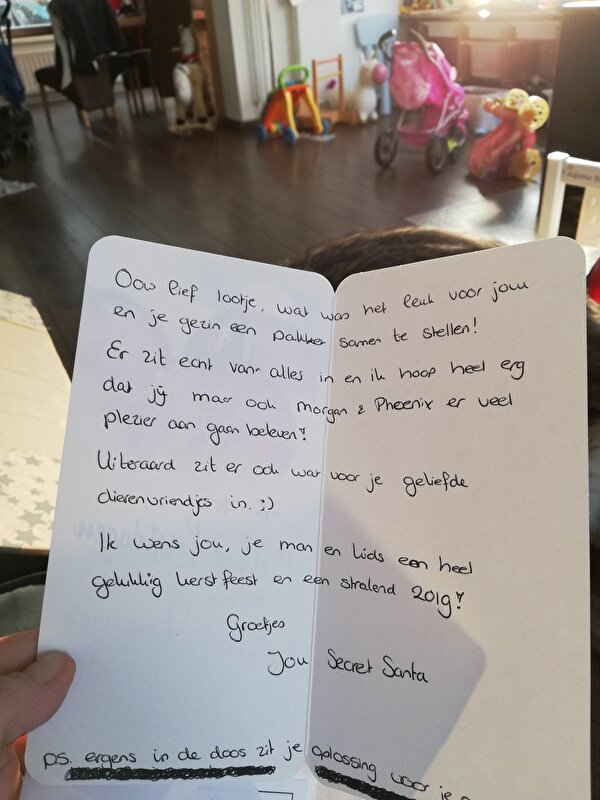 Oow lief lootje, wat was het leuk voor jou
en je gezin een pakket samen te stellen!
Er zit echt van alles in en ik hoop heel erg
dat jij maar ook Morgan & Pheenix er veel
plezier aan gaan beleven!
Uiteraard zit er ook wat voor je geliefde
dierenvriendjes in. ;)
Ik wens jou, je man en kids een heel
gelukkig kerstfeest en een stralend 2019!
Groetjes
Jou Secret Santa
ps. ergens in de doos zit je oplossing voor je